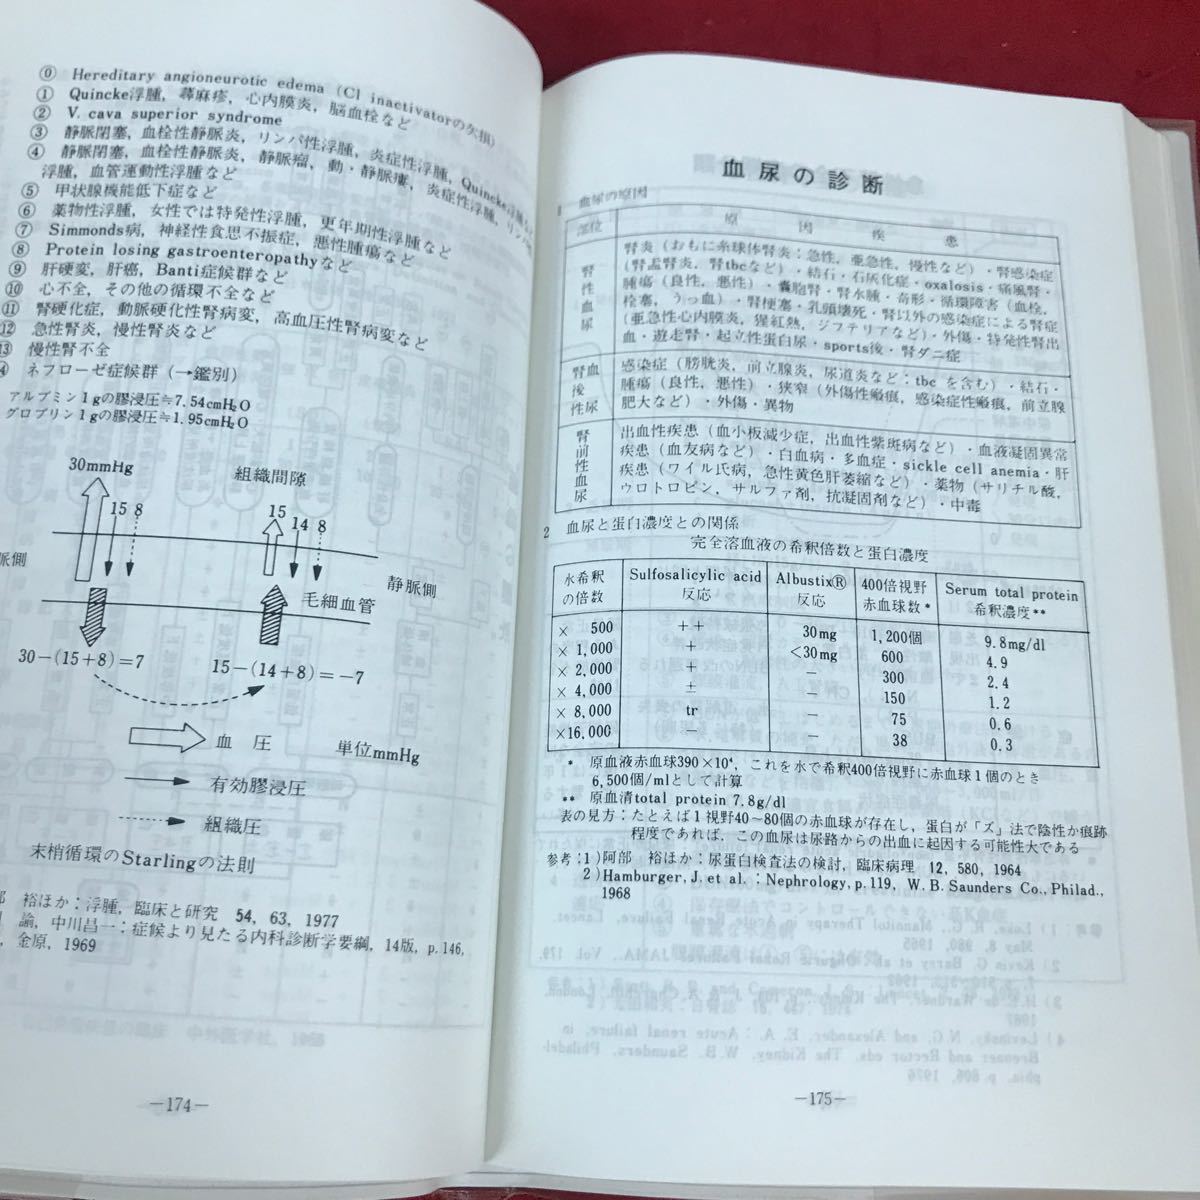 ⓪ Hereditary angioneurotic edema (C1 inactivatorの欠損)
① Quincke浮腫，蕁麻疹，心内膜炎，脳血栓など
② V. cava superior syndrome
③ 静脈閉塞，血栓性静脈炎，リンパ性浮腫，炎症性浮腫，Quincke浮腫
④ 静脈閉塞，血栓性静脈炎，静脈瘤，動・静脈瘻，炎症性浮腫，リンパ
浮腫，血管運動性浮腫など
⑤ 甲状腺機能低下症など
⑥ 薬物性浮腫，女性では特発性浮腫，更年期性浮腫など
⑦ Simmonds病，神経性食思不振症，悪性腫瘍など
⑧ Protein losing gastroenteropathyなど
⑨ 肝硬変，肝癌，Banti症候群など
⑩ 心不全，その他の循環不全など
⑪ 腎硬化症，動脈硬化性腎病変，高血圧性腎病変など
⑫ 急性腎炎，慢性腎炎など
⑬ 慢性腎不全
④ ネフローゼ症候群（→鑑別）
アルブミン1gの膠浸圧≒7.54cmH₂O
グロブリン1gの膠浸圧≒1.95cmH₂O
30mmHg
組織間隙
15 8
15
14 8
脈側
静脈側
毛細血管
30−(15+8)=7
15−(14+8)=−7
血 圧
単位mmHg
有効膠浸圧
組織圧
末梢循環のStarlingの法則
裕ほか：浮腫，臨床と研究 54, 63, 1977
諭，中川昌一：症候より見たる内科診断学要綱，14版，p.146,
金原，1969
—174—
血尿の診断
1 血尿の原因
部位 原因疾患
腎性血尿
腎炎（おもに糸球体腎炎：急性，亜急性，慢性など）・腎感染症
（腎盂腎炎，腎tbcなど）・結石・石灰化症・oxalosis・痛風腎・
腫瘍（良性，悪性）・嚢胞腎・腎水腫・奇形・循環障害（血栓，
栓塞，うっ血）・腎梗塞・乳頭壊死・腎以外の感染症による腎症
（亜急性心内膜炎，猩紅熱，ジフテリアなど）・外傷・特発性腎出
血・遊走腎・起立性蛋白尿・sports後・腎ダニ症
腎後性血尿
感染症（膀胱炎，前立腺炎，尿道炎など：tbc を含む）・結石・
腫瘍（良性，悪性）・狭窄（外傷性瘢痕，感染症性瘢痕，前立腺
肥大など）・外傷・異物
腎前性血尿
出血性疾患（血小板減少症，出血性紫斑病など）・血液凝固異常
疾患（血友病など）・白血病・多血症・sickle cell anemia・肝
疾患（ワイル氏病，急性黄色肝萎縮など）・薬物（サリチル酸，
ウロトロピン，サルファ剤，抗凝固剤など）・中毒
2 血尿と蛋白濃度との関係
完全溶血液の希釈倍数と蛋白濃度
水希釈の倍数 Sulfosalicylic acid反応 Albustix®反応 400倍視野赤血球数* Serum total protein希釈濃度**
× 500 ++ 30mg 1,200個 9.8mg/dl
× 1,000 + <30mg 600 4.9
× 2,000 + − 300 2.4
× 4,000 ± − 150 1.2
× 8,000 tr − 75 0.6
×16,000 − − 38 0.3
* 原血液赤血球390×10⁴，これを水で希釈400倍視野に赤血球1個のとき
6,500個/mlとして計算
** 原血清total protein 7.8g/dl
表の見方：たとえば1視野40〜80個の赤血球が存在し，蛋白が「ズ」法で陰性か痕跡
程度であれば，この血尿は尿路からの出血に起因する可能性大である
参考：1) 阿部 裕ほか：尿蛋白検査法の検討，臨床病理 12, 580, 1964
2) Hamburger, J. et al.：Nephrology, p. 119, W. B. Saunders Co., Philad.,
1968
—175—